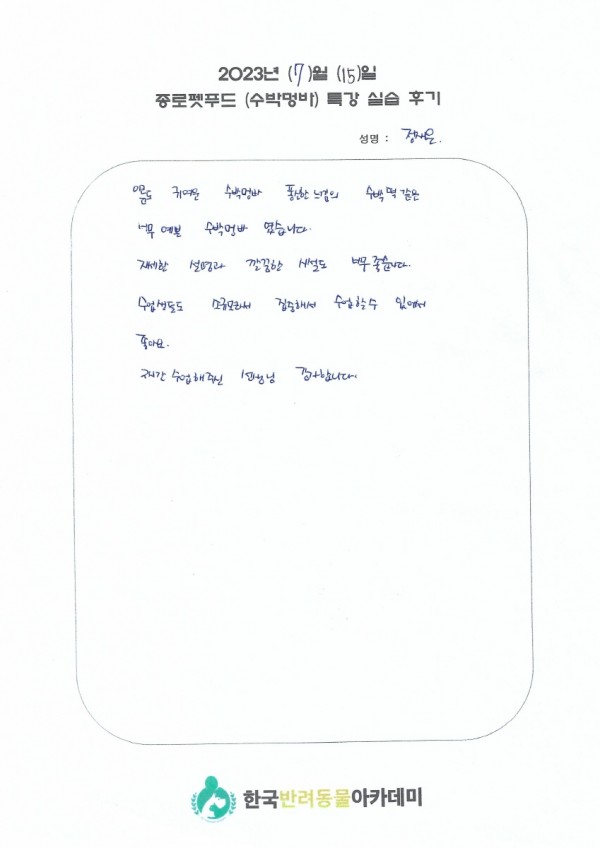 2023년 (7)월 (15)일
종로펫푸드 (수박멍바) 특강 실습 후기
성명 :
이름도 귀여운 수박멍바 폭신한 느낌의 수박떡 같은
너무 예쁜 수박멍바 였습니다.
자세한 설명과 깔끔한 시설도 너무 좋습니다.
수업생들도 소규모라서 집중해서 수업할 수 있어서
좋아요.
2시간 수업해주신 선생님 감사합니다.
한국반려동물아카데미